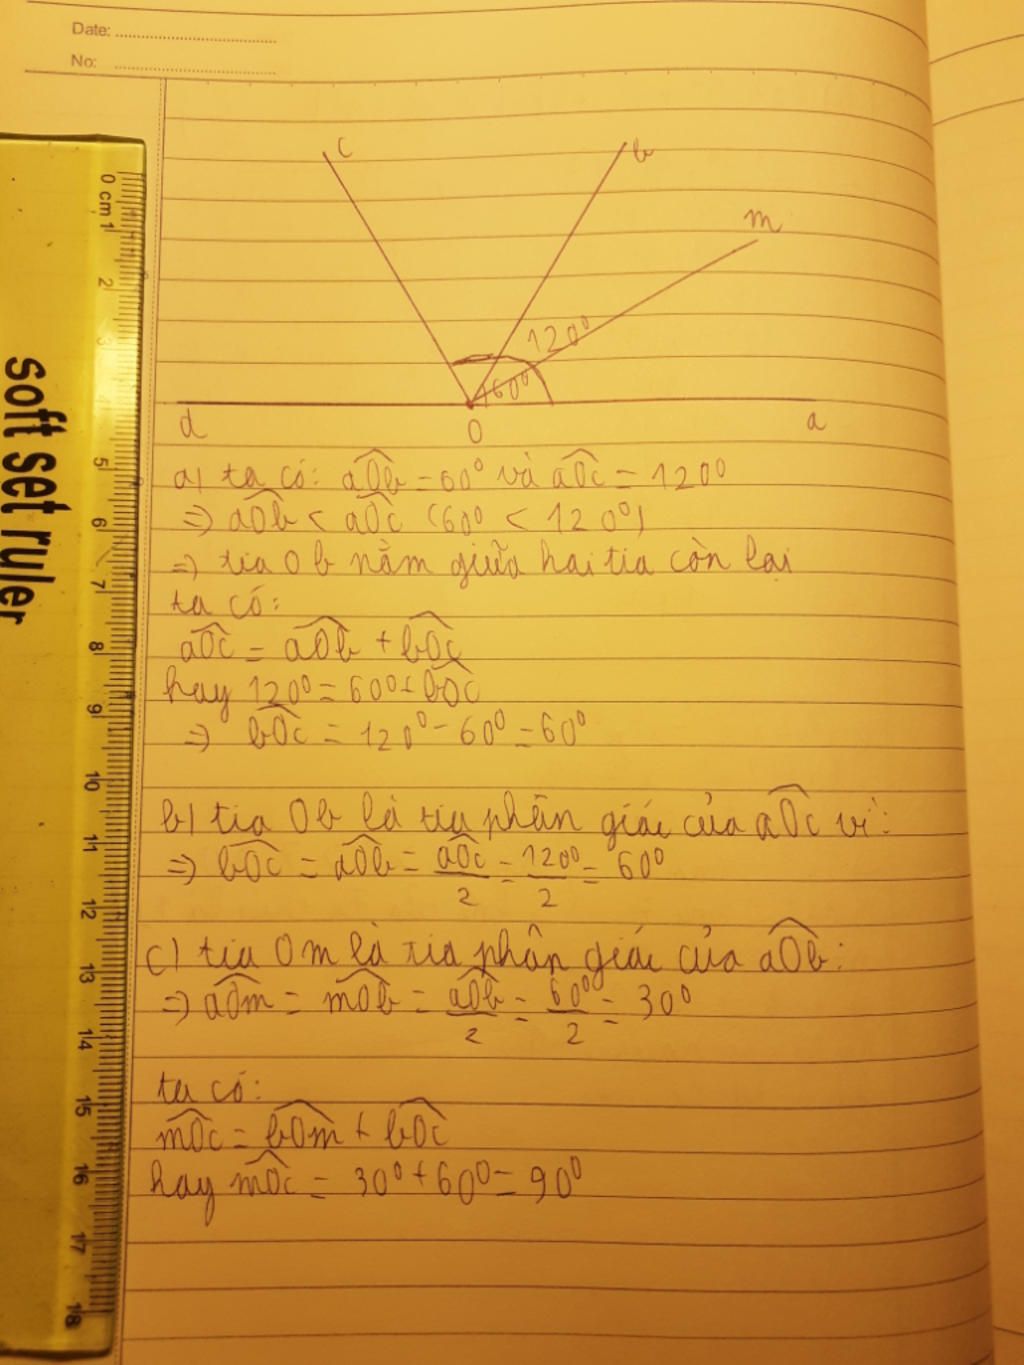 Date:
No:
c
b
m
120⁰
60⁰
d
O
a
0 cm 1
2
3
4
5
6
7
8
9
10
11
12
13
14
15
16
17
18
soft set ruler
a) ta có: aOb = 60⁰ và aOc = 120⁰
=> aOb < aOc (60⁰ < 120⁰)
=> tia Ob nằm giữa hai tia còn lại
ta có:
aOc = aOb + bOc
hay 120⁰ = 60⁰ + bOc
=> bOc = 120⁰ - 60⁰ = 60⁰
b) tia Ob là tia phân giác của aOc vì:
=> bOc = aOb = aOc/2 = 120⁰/2 = 60⁰
c) tia Om là tia phân giác của aOb:
=> aOm = mOb = aOb/2 = 60⁰/2 = 30⁰
ta có:
mOc = bOm + bOc
hay mOc = 30⁰ + 60⁰ = 90⁰